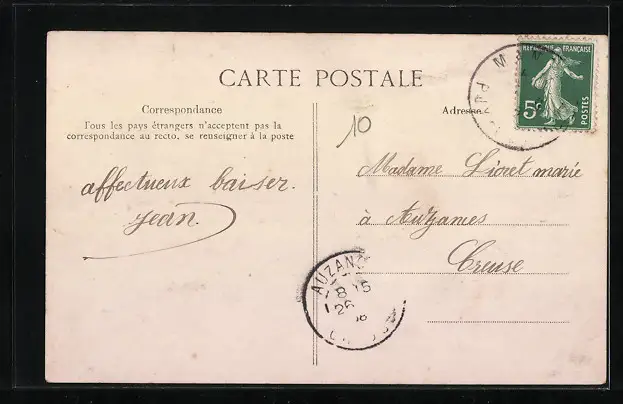 CARTE POSTALE
Correspondance
Tous les pays étrangers n'acceptent pas la
correspondance au recto, se renseigner à la poste
Adresse
RÉPUBLIQUE FRANÇAISE
5c
POSTES
10
affectueux baiser.
Jean.
Madame Lioret marie
à Auzances
Creuse
AUZANC
26